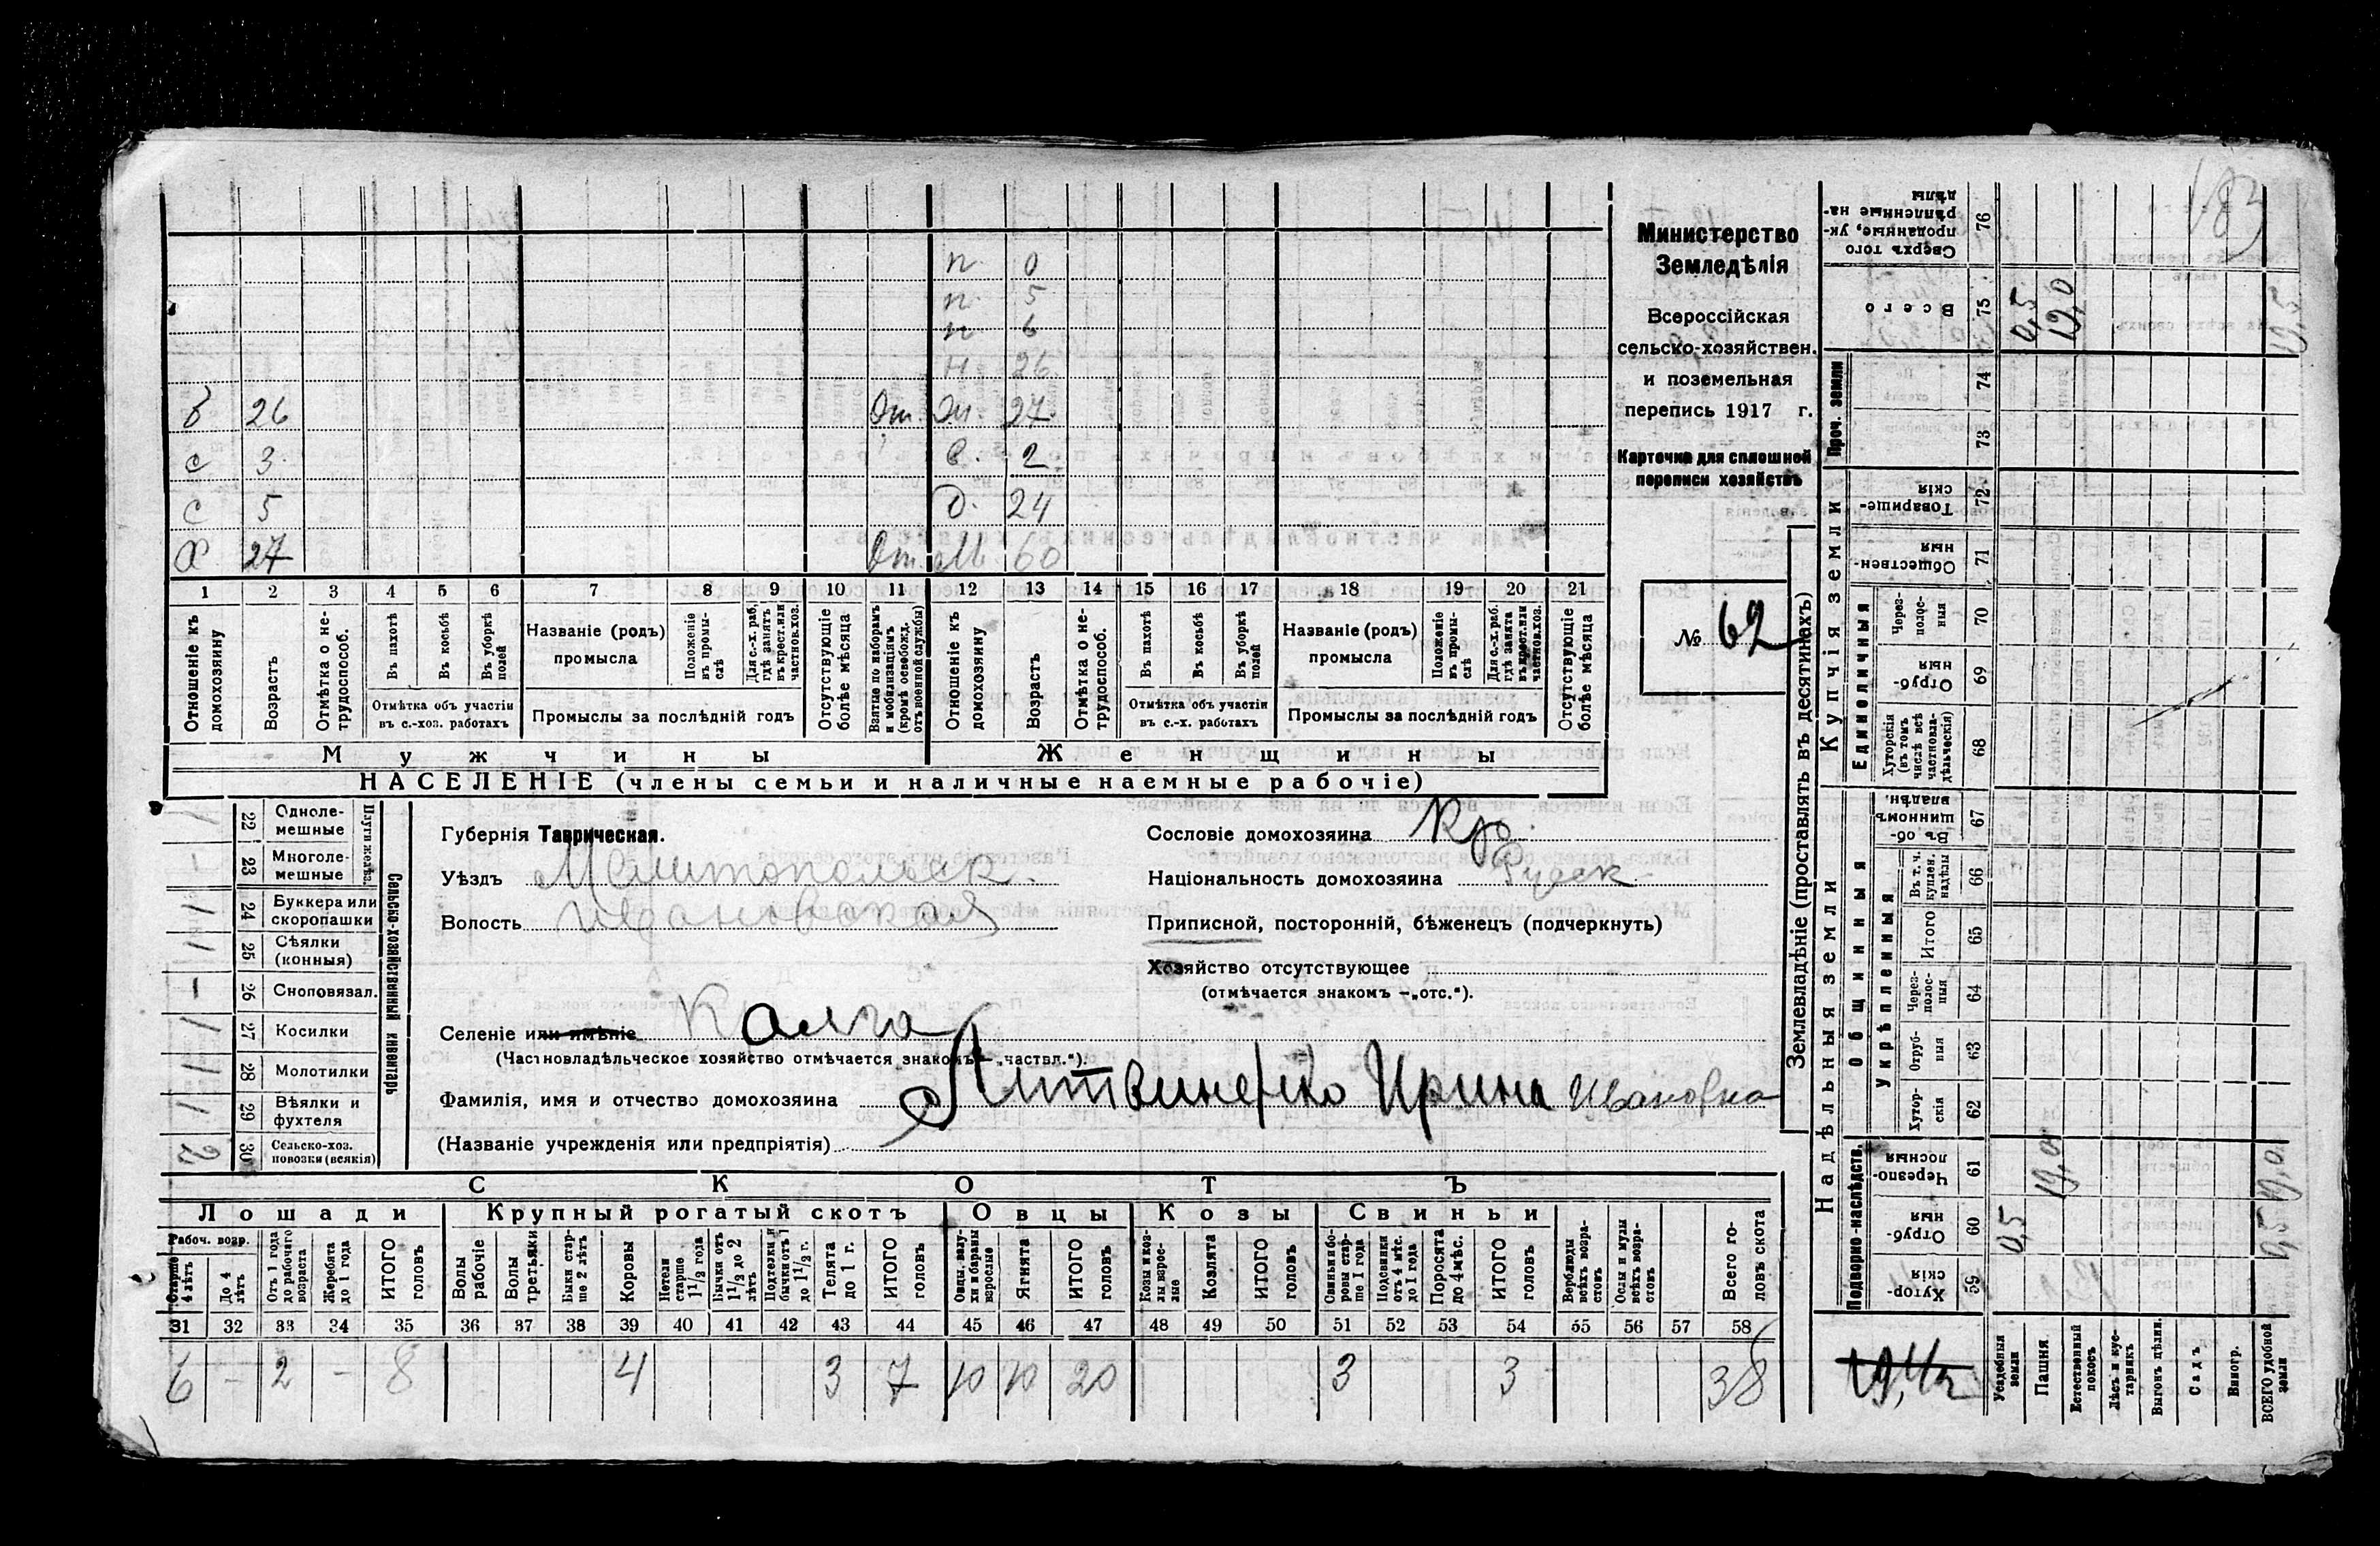 п. 0
п. 5
п 6
Н. 26
б 26 От. Эт. 27
с 3 в. 2
с 5 д. 24
Х 27 От. М. 60
1 2 3 4 5 6 7 8 9 10 11 12 13 14 15 16 17 18 19 20 21
Отношеніе къ домохозяину
Возрастъ
Отмѣтка о не-
трудоспособ.
Въ пахотѣ
Въ косьбѣ
Въ уборкѣ
полей
Отмѣтка объ участіи
въ с.-хоз. работахъ
Названіе (родъ)
промысла
Положеніе
въ промы-
слѣ
Для с.-х. раб.
гдѣ занятъ
въ крест. или
частнов. хоз.
Промыслы за послѣдній годъ
Отсутствующіе
болѣе мѣсяца
Взятые по наборамъ
и мобилизаціямъ
(кромѣ освобожд.
отъ военной службы)
Отношеніе къ
домохозяину
Возрастъ
Отмѣтка о не-
трудоспособ.
Въ пахотѣ
Въ косьбѣ
Въ уборкѣ
полей
Отмѣтка объ участіи
въ с.-х. работахъ
Названіе (родъ)
промысла
Положеніе
въ промы-
слѣ
Для с.-х. раб.
гдѣ занята
въ крест. или
частнов. хоз.
Промыслы за послѣдній годъ
Отсутствующіе
болѣе мѣсяца
Мужчины Женщины
НАСЕЛЕНІЕ (члены семьи и наличные наемные рабочіе)
Министерство
Земледѣлія
Всероссійская
сельско-хозяйствен.
и поземельная
перепись 1917 г.
Карточка для сплошной
переписи хозяйствъ
№ 62
Плуги желѣз.
22 Одноле-
мешные
23 Многоле-
мешные
24 Буккера или
скоропашки
25 Сѣялки
(конныя)
26 Сноповязал.
27 Косилки
28 Молотилки
29 Вѣялки и
фухтеля
2 30 Сельско-хоз.
повозки (всякія)
Сельско-хозяйственный инвентарь
Губернія Таврическая.
Уѣздъ Мелитопольск.
Волость Ивановская
Селеніе или имѣніе Калга
(Частновладѣльческое хозяйство отмѣчается знакомъ — „частвл.“).
Фамилія, имя и отчество домохозяина Литвиненко Ирина Ивановна
(Названіе учрежденія или предпріятія)
Сословіе домохозяина Кр.
Національность домохозяина Русск
Приписной, посторонній, бѣженецъ (подчеркнуть)
Хозяйство отсутствующее
(отмѣчается знакомъ —„отс.“).
СКОТЪ
Лошади Крупный рогатый скотъ Овцы Козы Свиньи
Рабоч. возр.
Старше
4 лѣтъ
До 4
лѣтъ
Отъ 1 года
до рабочаго
возраста
Жеребята
до 1 года
ИТОГО
головъ
Волы
рабочіе
Волы
третьяки
Быки стар-
ше 2 лѣтъ
Коровы
Нетели
старше
1 1/2 года
Бычки отъ
1 1/2 до 2
лѣтъ
Подтелки и
бычки отъ 1
до 1 1/2 г.
Телята
до 1 г.
ИТОГО
головъ
Овцы, валу-
хи и бараны
взрослые
Ягнята
ИТОГО
головъ
Козы и коз-
лы взрос-
лые
Козлята
ИТОГО
головъ
Свиньи и бо-
ровы стар-
ше 1 года
Подсвинки
отъ 4 мѣс.
до 1 года
Поросята
до 4 мѣс.
ИТОГО
головъ
Верблюды
всѣхъ возра-
стовъ
Ослы и мулы
всѣхъ возра-
стовъ
Всего го-
ловъ скота
31 32 33 34 35 36 37 38 39 40 41 42 43 44 45 46 47 48 49 50 51 52 53 54 55 56 57 58
6 - 2 - 8 4 3 7 10 10 20 3 3 38
Землевладѣніе (проставлять въ десятинахъ)
Надѣльныя земли
Купчія земли
Проч. земли
Подворно-наслѣдств.
Общинныя
Укрѣпленныя
Единоличныя
76 Сверхъ того
проданные, ук-
рѣпленные на-
дѣлы
75 Всего 0,5 19,0 19,5
74
73
72 Товарище-
скія
71 Обществен-
ныя
70 Через-
полос-
ныя
69 Отруб-
ныя
68 Хуторскія
(въ томъ
числѣ всѣ
частновла-
дѣльческія)
67 Въ об-
щинномъ
владѣн.
66 Въ т. ч.
куплен.
надѣлы
65 Итого
64 Через-
полос-
ныя
63 Отруб-
ныя
62 Хутор-
скія
61 Черезпо-
лосныя 19,0 19,0
60 Отруб-
ныя 0,5 0,5
59 Хутор-
скія
Усадебныя
земли
Пашня
Естественный
покосъ
Лѣсъ и кус-
тарникъ
Выгонъ цѣлин.
Садъ
Виногр.
ВСЕГО удобной
земли
183